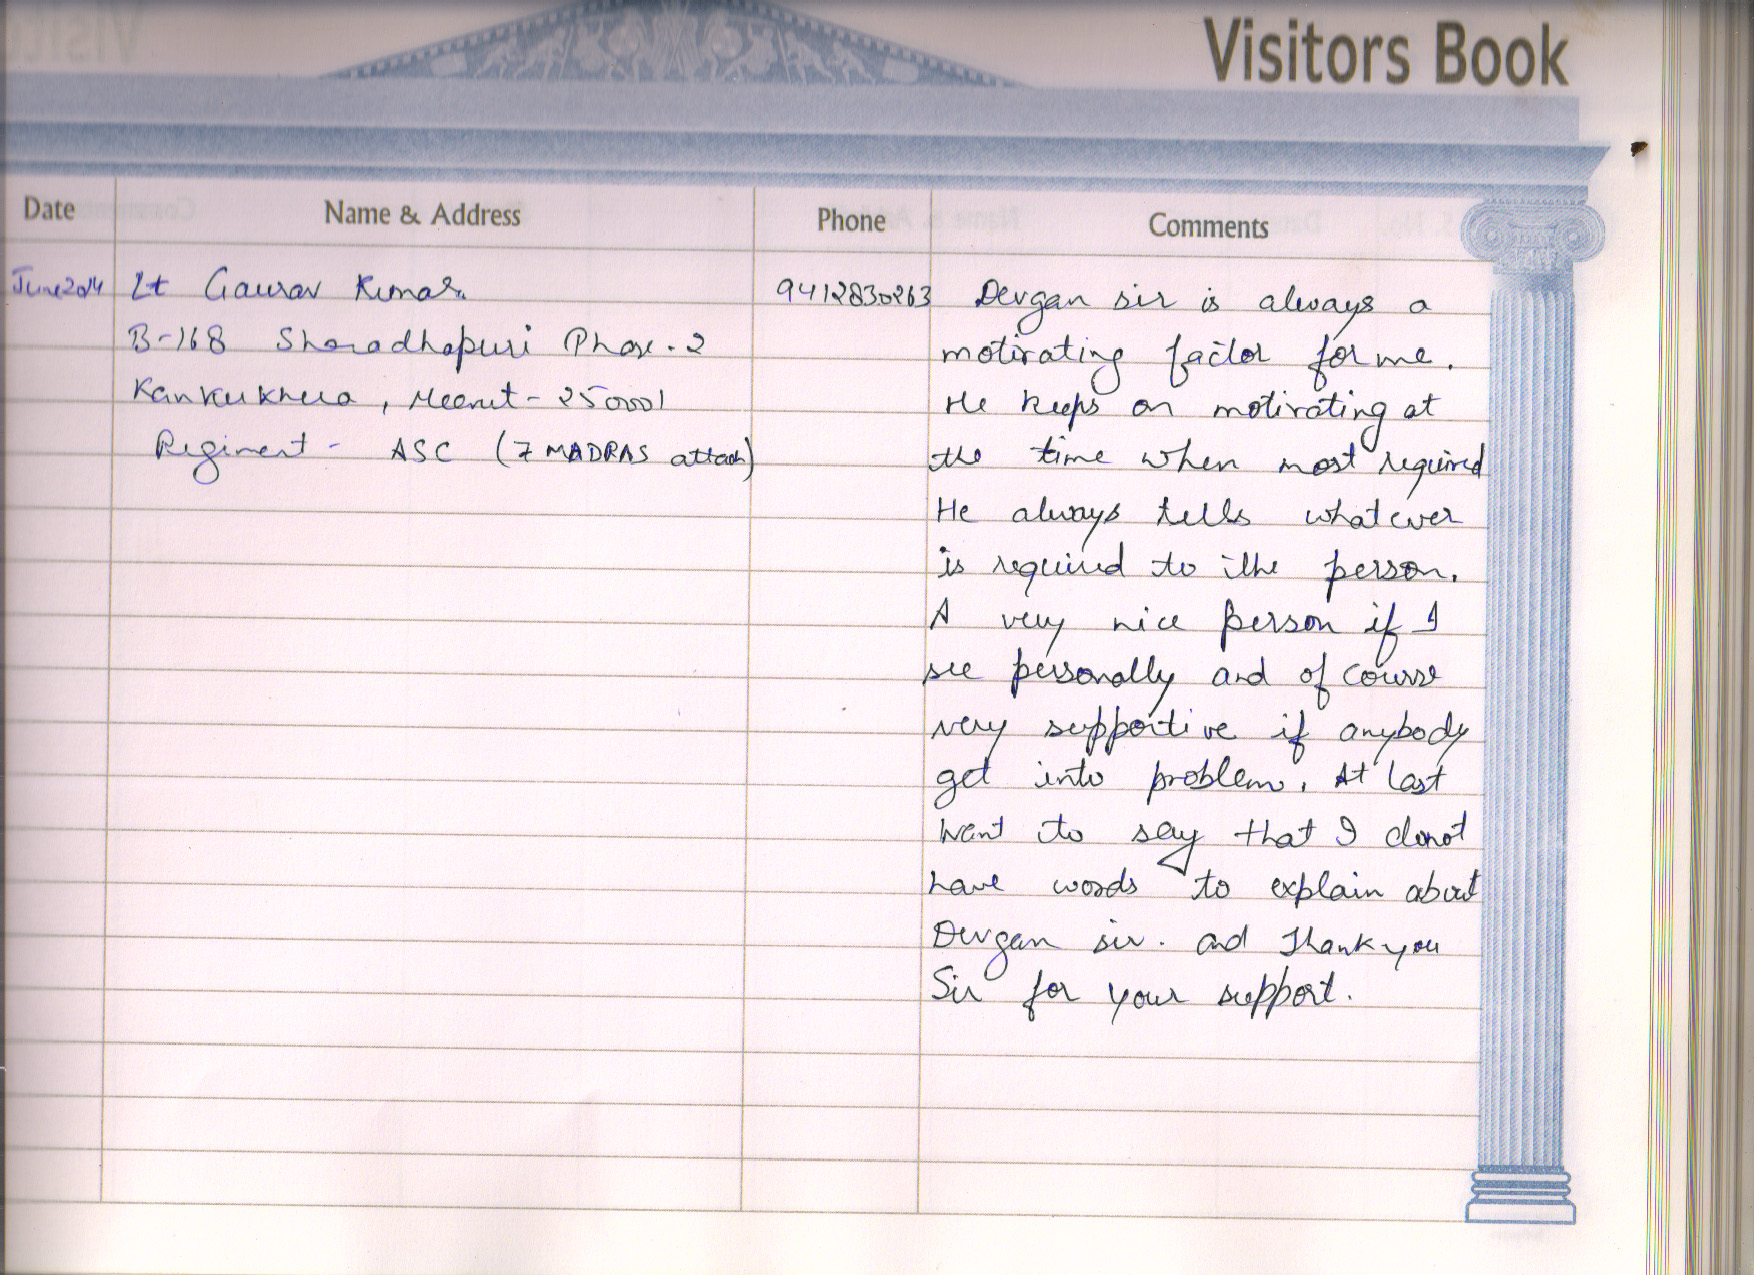 Visitors Book
Date Name & Address Phone Comments
June 2014 Lt Gaurav Kumar 9412830263 Devgan sir is always a
B-168 Sharadhapuri Phase-2 motivating factor for me.
Kankerkhera, Meerut - 250001 He keeps on motivating at
Regiment - ASC (7 MADRAS attach) the time when most required
He always tells whatever
is required to the person.
A very nice person if I
see personally and of course
very supportive if anybody
get into problem. At last
want to say that I donot
have words to explain about
Devgan sir. and Thank you
Sir for your support.